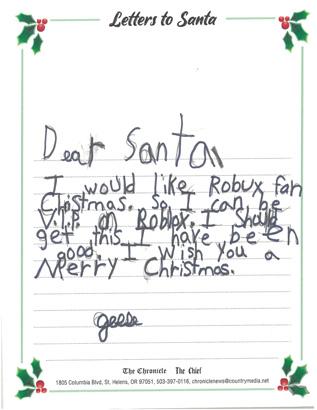 Letters to Santa
Dear Santa
I would like Robux for
Christmas. So I can be
V.I.P. on Roblox. I should
get this I have been
good. I wish you a
Merry Christmas.
The Chronicle The Chief
1805 Columbia Blvd, St. Helens, OR 97051, 503-397-0116, chroniclenews@countrymedia.net